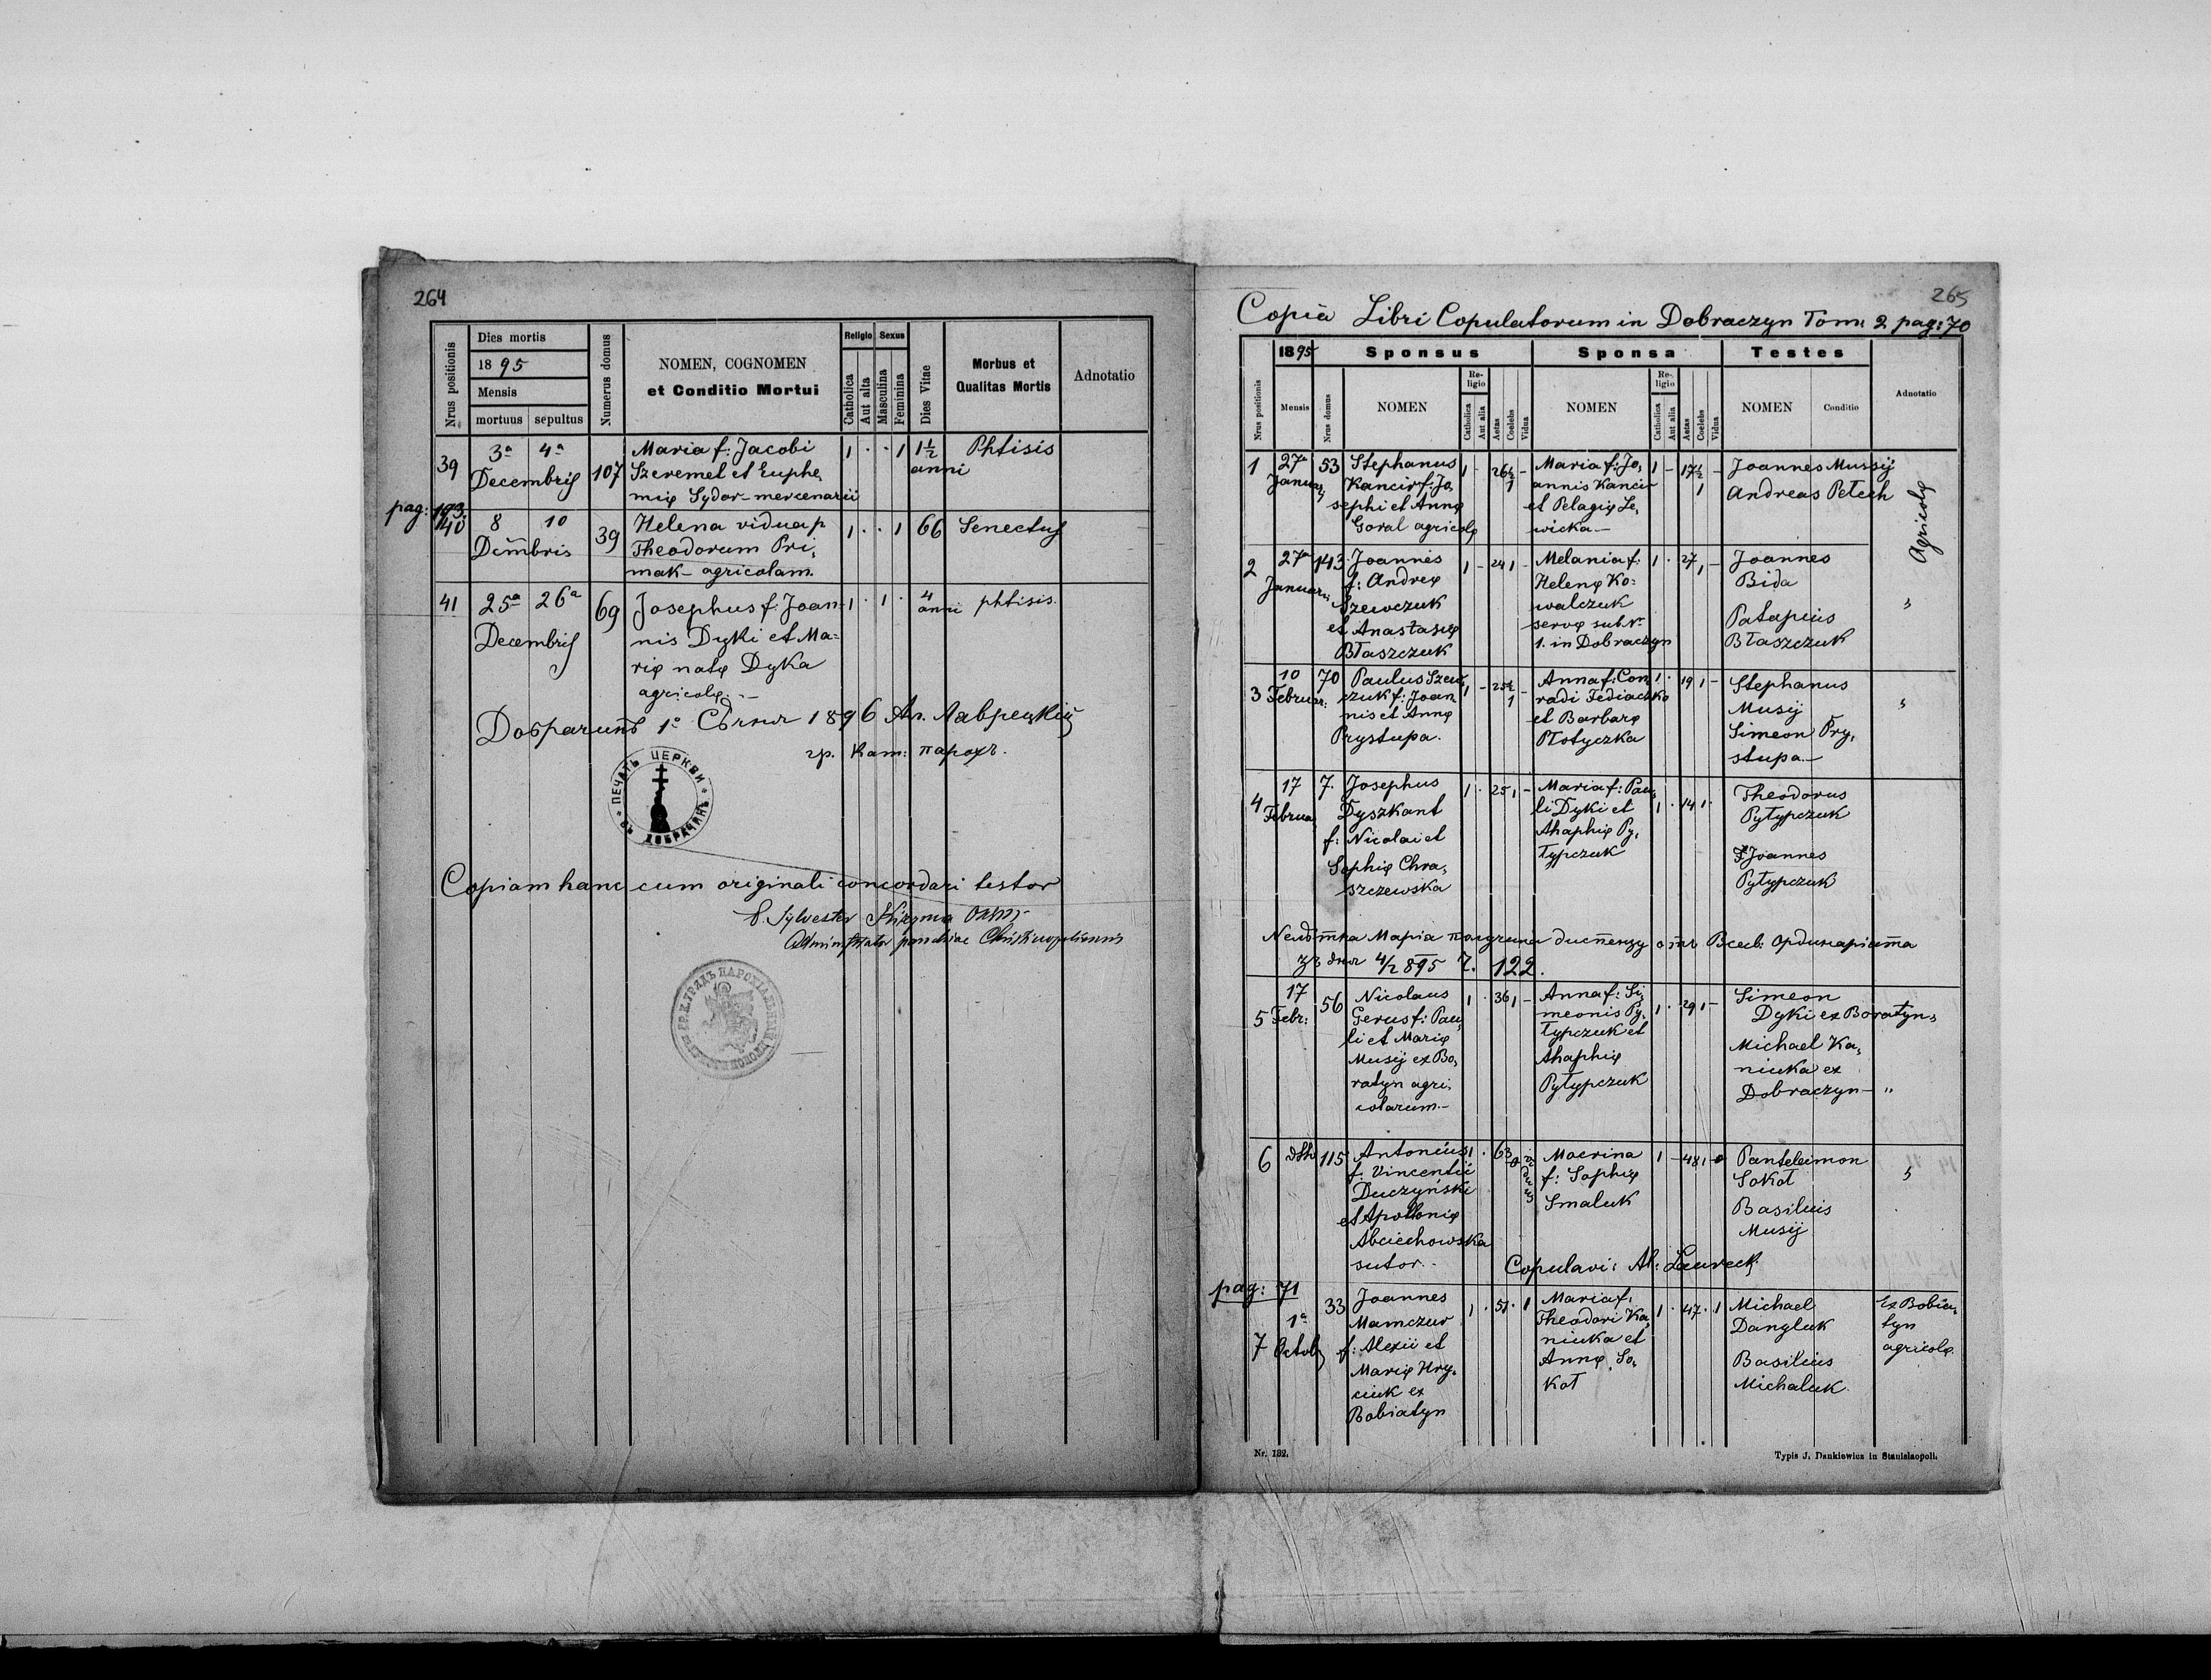 264
Nrus positionis
Dies mortis
1895
Mensis
mortuus sepultus
Numerus domus
NOMEN, COGNOMEN
et Conditio Mortui
Religio Sexus
Catholica
Aut alta
Masculina
Feminina
Dies Vitae
Morbus et
Qualitas Mortis
Adnotatio
39 3a 4a Decembris 107 1 · · 1 1½ anni Phtisis
Maria f: Jacobi
Szeremet et Euphe,
mię Sydor mercenarii
pag: 193.
40 8 10 Dembris 39 1 · · 1 66 Senectus
Helena vidua p
Theodorum Pri,
mak agricolam.
41 25a 26a Decembris 69 1 · 1 · 4 anni phtisis.
Josephus f: Joan-
nis Dyki et Ma=
rię natę Dyka
agricolę. –
Добрачинъ 1о Сѣчня 1896 Ал. Лаврецкій
гр. кат: парохъ.
ПЕЧАТЬ ЦЕРКВИ ВЪ ДОБРАЧИНѢ
Copiam hanc cum originali concordari testor
Sylvester
Administrator parochiae Christinopoliensis
265
Copia Libri Copulatorum in Dobraczyn Tom: 2 pag: 70
1895 Sponsus Sponsa Testes
Nrus positionis
Mensis
Nrus domus
NOMEN
Re-
ligio
Catholica
Aut alia
Aetas
Coelebs
Vidua
NOMEN
Re-
ligio
Catholica
Aut alia
Aetas
Coelebs
Vidua
NOMEN Conditio
Adnotatio
1 27a Januarij 53 1 – 26½ 1 –
Stephanus
Kancir f: Jo,
sephi et Annę
Goral agricolę
Maria f: Jo,
annis Kancir
et Pelagię Le,
wicka –
1 – 17½ 1 –
Joannes Mussij
Andreas Petech
Agricolę
2 27a Januarii 143 1 – 24 1 –
Joannes
f: Andreę
Szewczuk
et Anastasię
Błaszczuk
Melania f:
Helenę Ko=
walczuk
servę sub Nr
1. in Dobraczyn
1 · 27 1 –
Joannes
Bida
Patapius
Błaszczuk
3 10 Februar: 70 1 – 25½ 1 –
Paulus Szew,
czuk f: Joan,
nis et Annę
Prystupa.
Anna f: Con,
radi Fediaczko
et Barbarę
Płotyczka
1 · 19 1 –
Stephanus
Musij
Simeon Pry,
stupa. –
4 17 Februa 7. 1 · 25 1 –
Josephus
Dyszkant
f: Nicolai et
Sophię Chra,
szczewska
Maria f: Pau,
li Dyki et
Ahaphię Py,
typczuk
1 · 14 1 ·
Theodorus
Pytypczuk
Joannes
Pytypczuk
Марія диспензу отъ Всесв: Ординаріата
зъ дня 4/2 895 Ч. 122.
5 17 Febr: 56 1 · 36 1 –
Nicolaus
Gerus f: Pau,
li et Marię
Musij ex Bo,
ratyn agri,
colarum. –
Anna f: Si,
meonis Py,
typczuk et
Ahaphię
Pytypczuk
1 · 29 1 –
Simeon
Dyki ex Boratyn,
Michael Ka,
niuka ex
Dobraczyn – „
6 115 1 · 63 viduus
Antonius
f: Vincentii
Duczyński
et Apollonię
Abciechowska
sutor. –
Macrina
f: Sophię
Smaluk
1 – 48 1
Panteleimon
Sokoł
Basilius
Musij
Copulavi: Al: Laureck.
pag: 71
7 1a Octob 33 1 · 51 · 1
Joannes
Mamczur
f: Alexii et
Marię Hry,
ciuk ex
Bobiatyn
Maria f:
Theodori Ka,
niuka et
Annę So,
koł
1 · 47 · 1
Michael
Dangluk
Basilius
Michaluk.
Ex Bobia,
tyn
agricolę.
Nr. 132.
Typis J. Dankiewicz in Stanislaopoli.